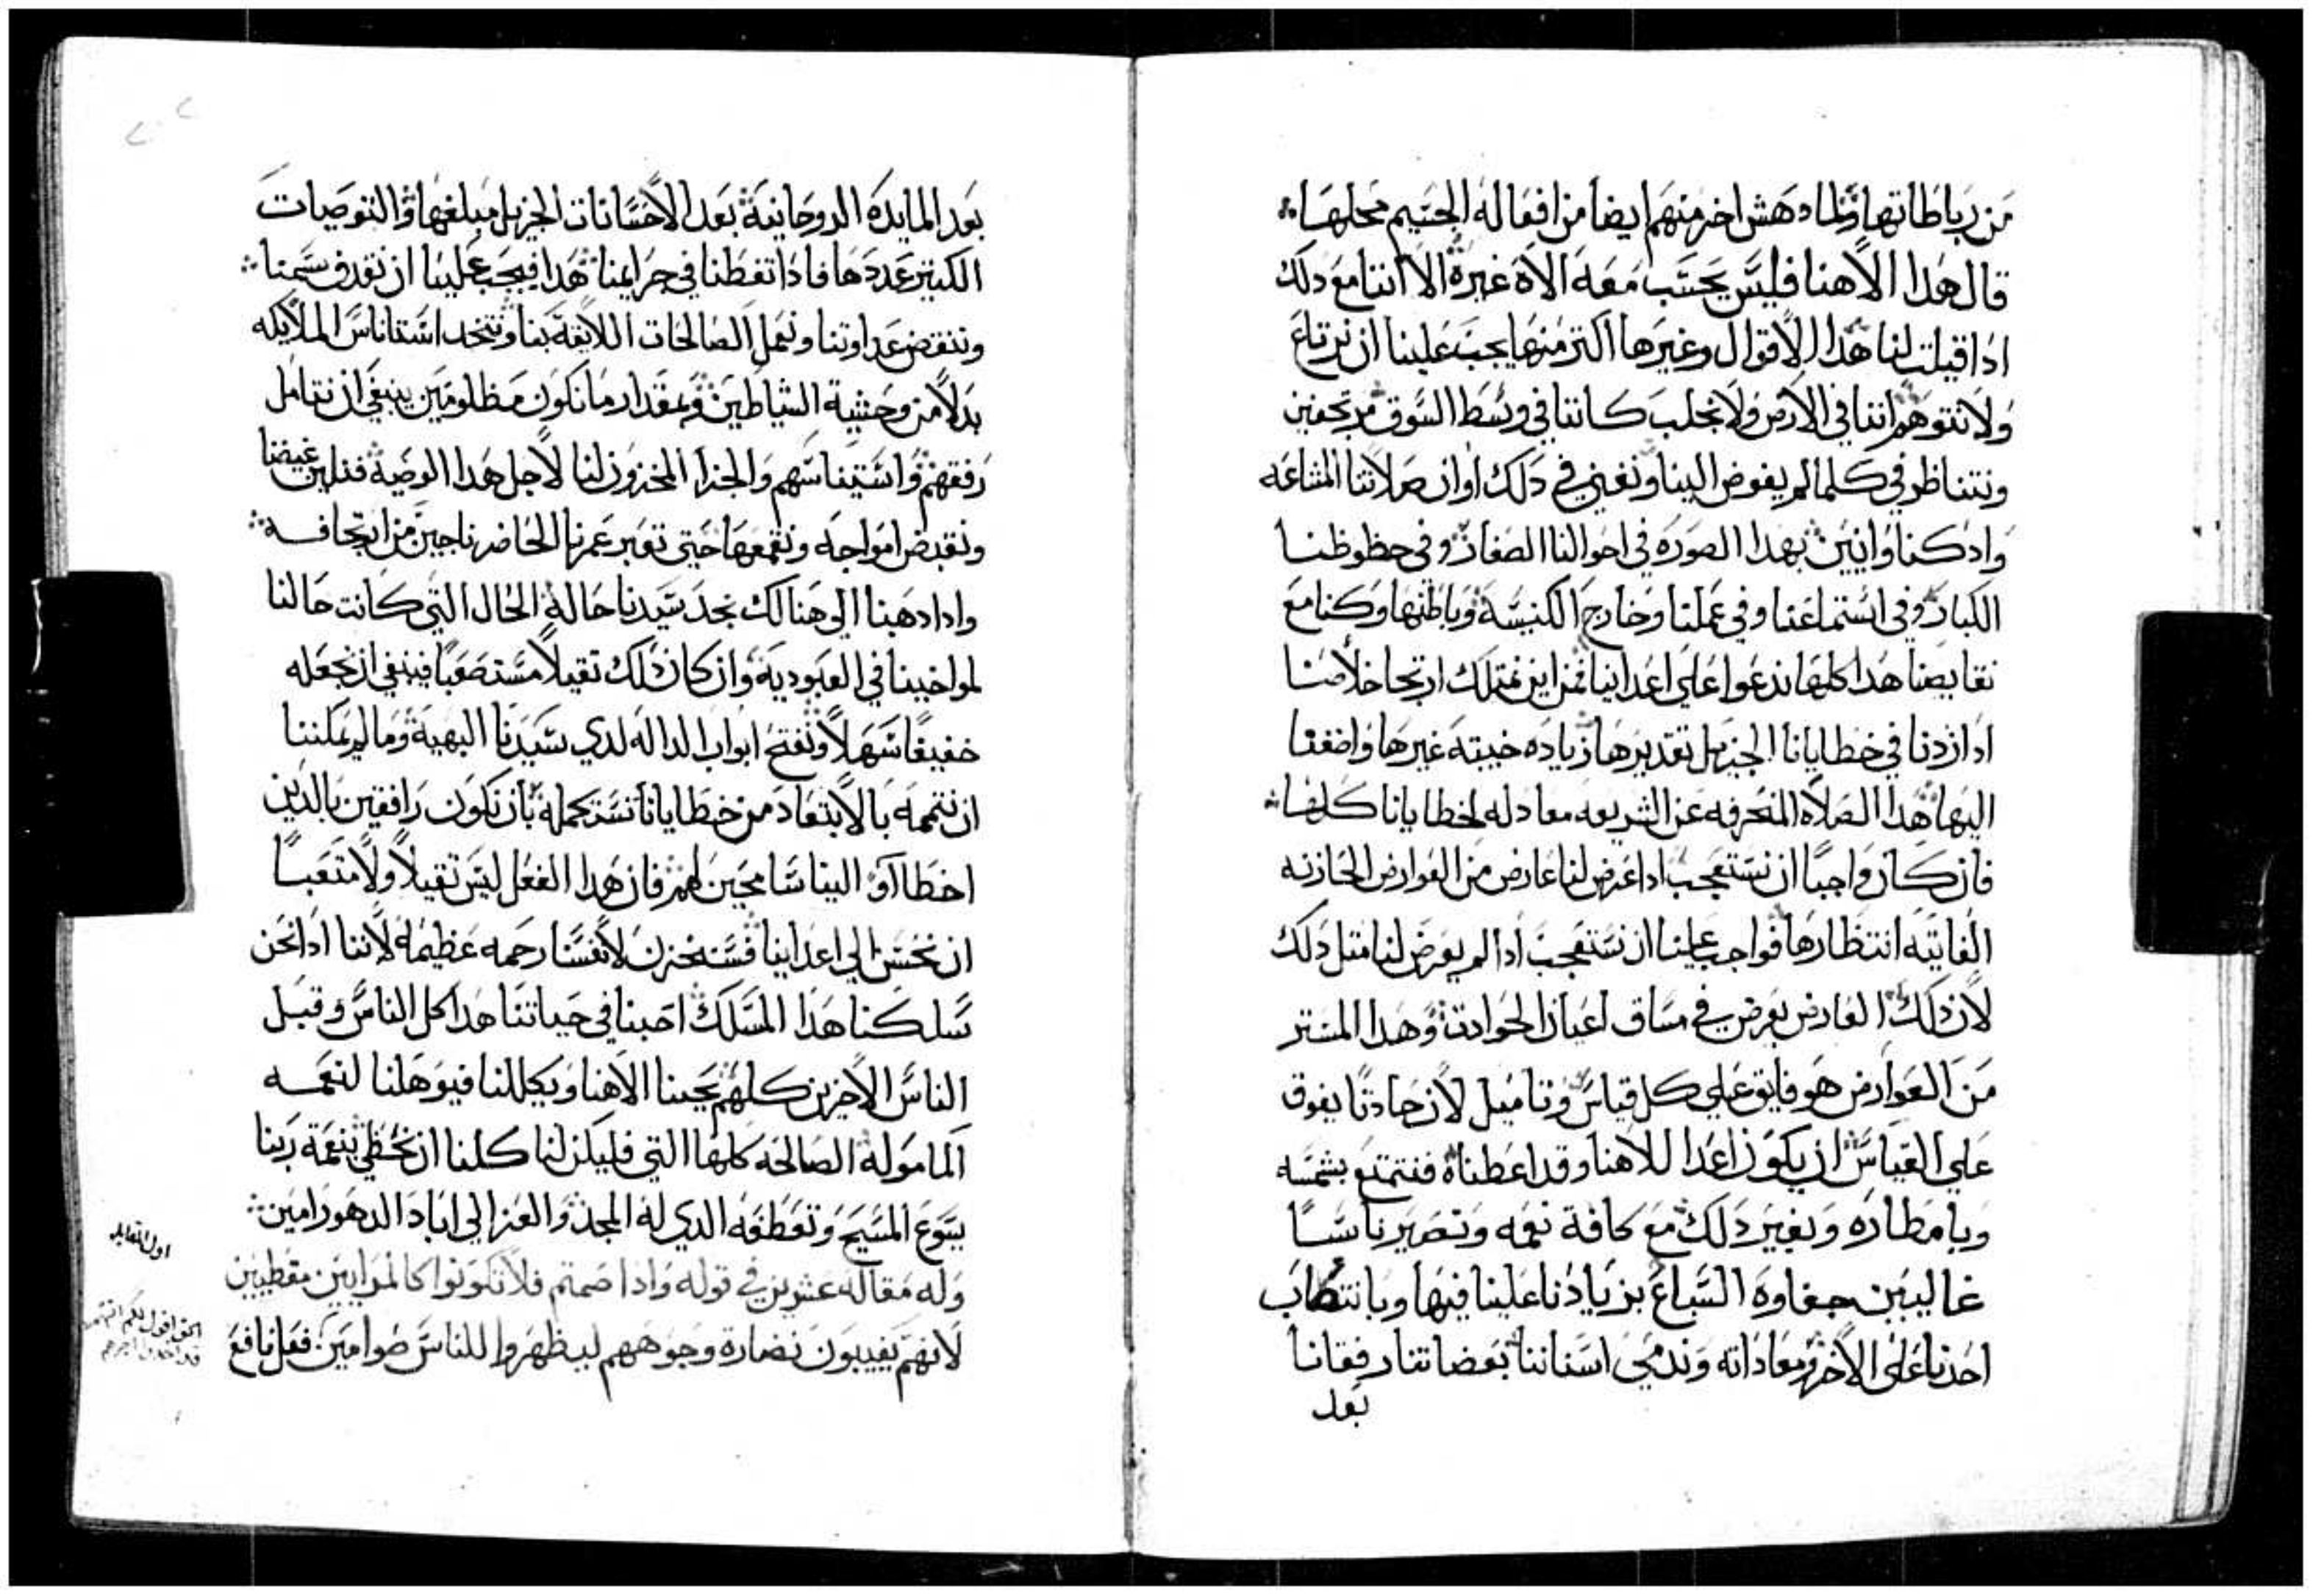 من رباطاتها ولما دهش اخر منهم ايضا من افعاله الجسيم محلها
قال هدا الاهنا فليس يحسب معه الاه غيره الا اننا مع دلك
ادا قيلت لنا هدا الاقوال وغيرها اكتر منها يجب علينا ان نرتاع
ولا نتوهم اننا في الارض ولا نجلب كاننا في وسط السوق مرتجفين
ونتناظر في كلما لم يفوض الينا ونفني في دلك اوان صلاتنا المشاعه
واد كنا وانيين بهدا الصوره في احوالنا الصغار وفي حظوظنا
الكبار وفي استماعنا وفي عملنا وخارج الكنيسة وباطنها وكنا مع
نقايصنا هدا كلها ندعوا على اعداينا فمن اين نمتلك ارتجا خلاصنا
ادا زدنا في خطايانا الجزيل تقديرها زياده خيبته غيرها واضفنا
اليها هدا الصلاه المنحرفه عن الشريعه معادله لخطايانا كلها
فان كان واجبا ان نستعجب ادا عرض لنا عارض من العوارض الحازنه
الفايته انتظارها فواجب علينا ان نستعجب ادا لم يعرض لنا متل دلك
لان دلك العارض يعرض في مساق اعيان الحوادت وهدا المستر
من العوارض هو فايق على كل قياس وتاميل لان حادتا يفوق
على القياس ان يكون اعدا للاهنا وقد اعطناه فنتمتع بشمسه
وبامطاره وبغير دلك مع كافة نعمه ونصير ناسا
غالبين جفاوة السباع بزيادنا علينا فيها وبانتصاب
احدنا على الاخر ومعاداته وندمي اسناننا بعضاتنا رفقانا
بعد
بعد المايده الروحانية بعد الاحسانات الجزيل مبلغها والتوصيات
الكتير عددها فادا تفطنا في جرايمنا هدا فيجب علينا ان نقدف سمنا
وننقض عداوتنا ونعمل الصالحات اللايقة بنا ونتخد استاناس الملايكه
بدلا من وحشية الشياطين وبمقدار ما نكون مظلومين ينبغي ان نتامل
رفقهم واستيناسهم والجزا المخزون لنا لاجل هدا الوصية فنلين غيضنا
ونقبض امواجه ونقمعها حتى تعبر عمرنا الحاضر ناجين من ارتجافه
وادا دهبنا الى هنالك نجد سيدنا حاله الحال التي كانت حالنا
لمواخيينا في العبودية وان كان دلك تقيلا مستصعبا فينبغي ان نجعله
خفيفا سهلا ونفتح ابواب الداله لدي سيدنا البهية وما لم يمكننا
ان نتممه بالابتعاد من خطايانا نستكمله بان نكون رافقين بالدين
اخطاآو الينا سامحين لهم فان هدا الفعل ليس تقيلا ولا متعبا
ان نحسن الي اعداينا فسنخزن لانفسنا رحمه عظيمه لاننا ادا نحن
سلكنا هدا المسلك احبنا في حياتنا هدا كل الناس وقبل
الناس الاخرين كلهم يحبنا الاهنا ويكللنا فيوهلنا لنعمه
المامولة الصالحه كلها التي فليكن لنا كلنا ان نحظي بنعمة ربنا
يسوع المسيح وتعطفه الدي له المجد والعز الي اباد الدهور امين
وله مقاله عشرين في قوله وادا صمتم فلا تكونوا كالمرايين مقطبين
لانهم يغيبون نضارة وجوههم ليظهروا للناس صوامين فعل نافع
اول المقابله
الحق اقول لكم انهم
قد اخدوا اجرهم